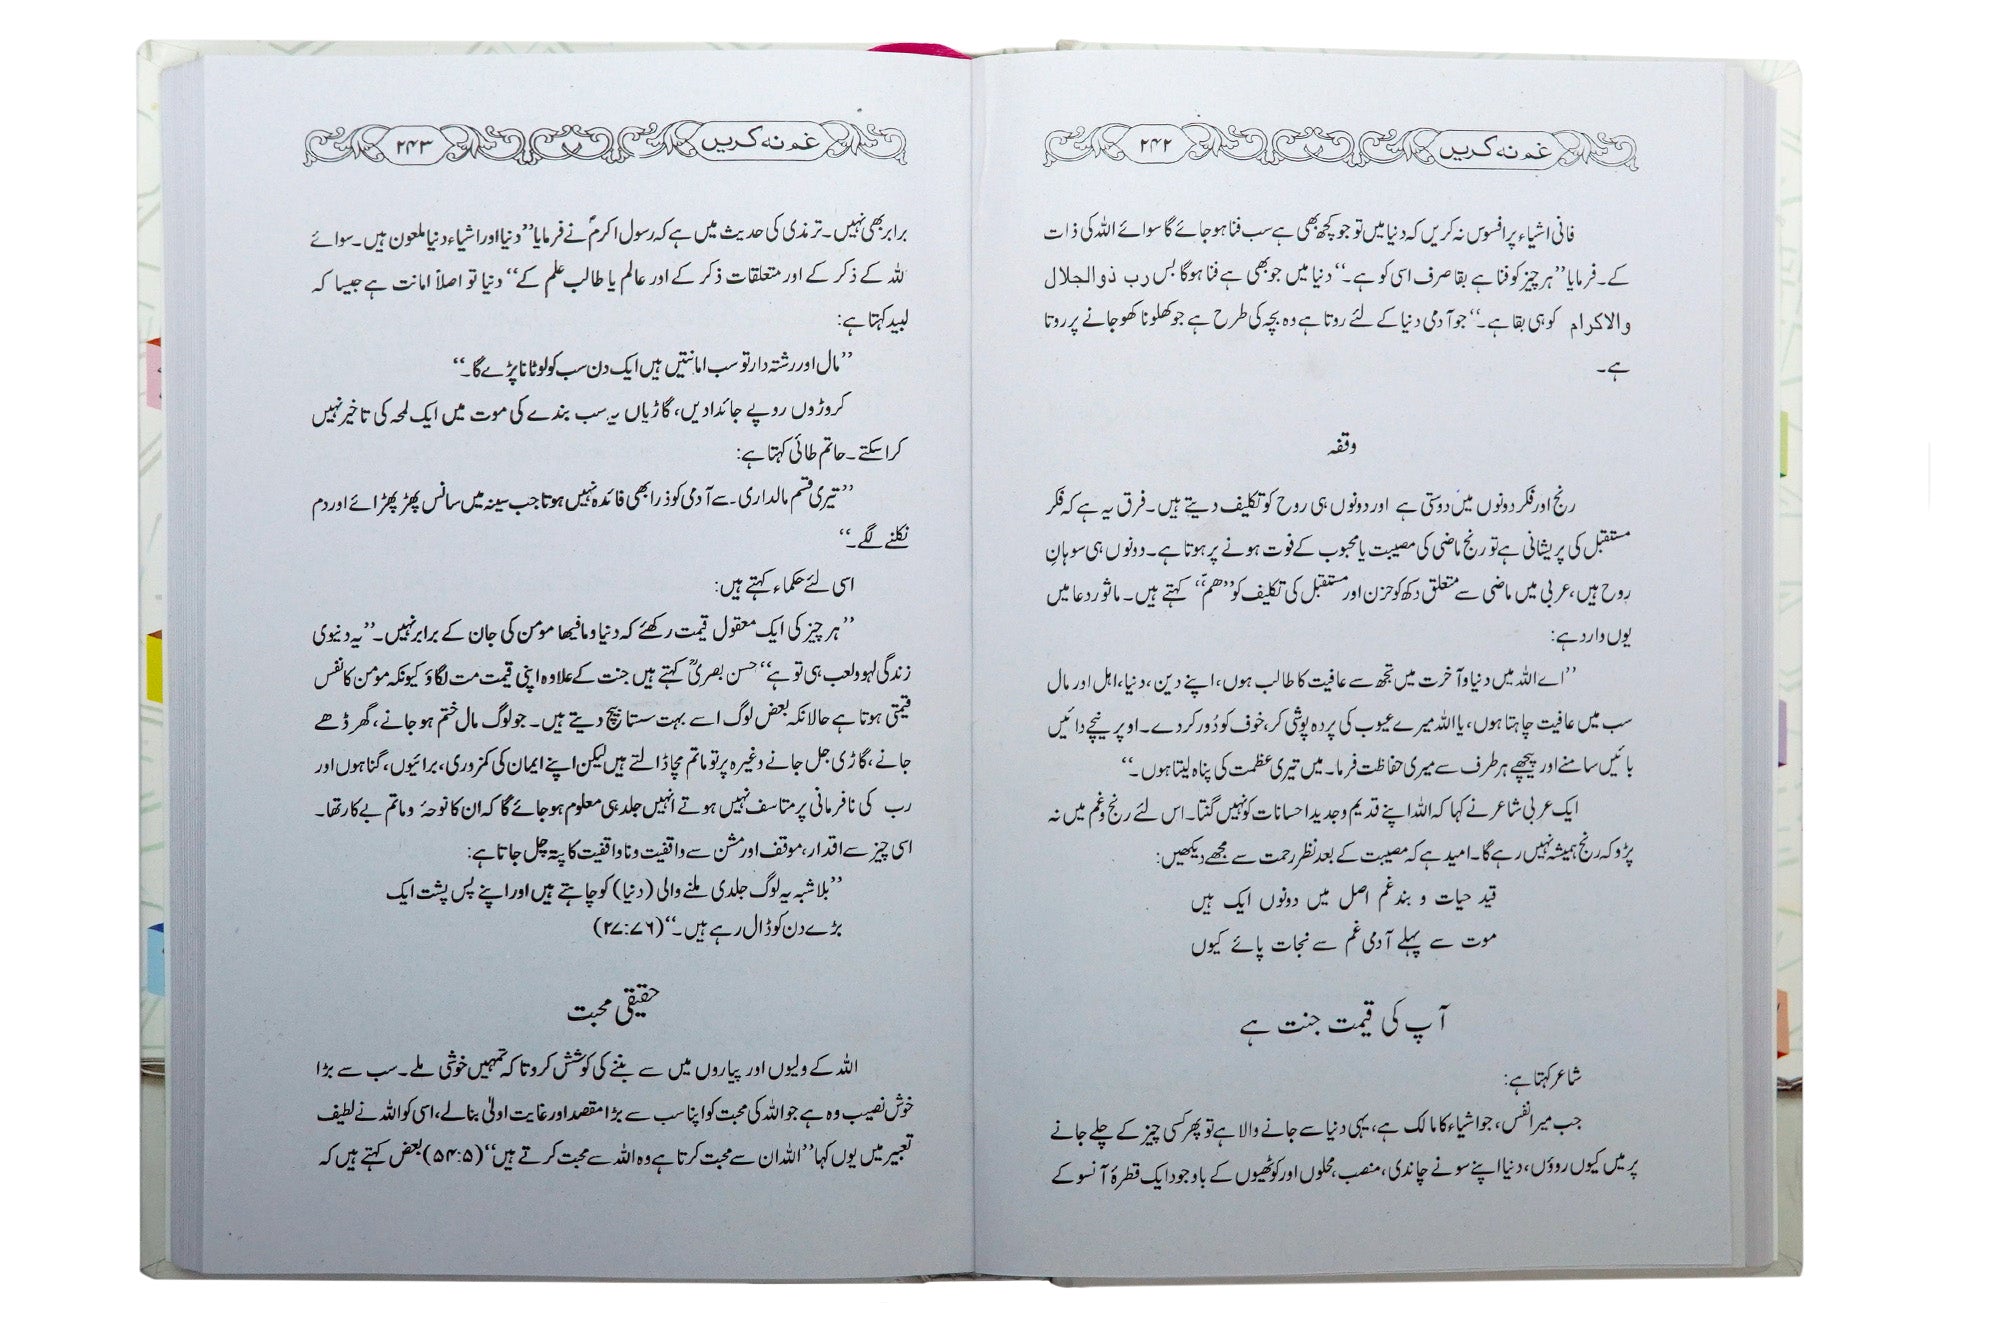 غم نہ کریں ۲۴۲
فانی اشیاء پر افسوس نہ کریں کہ دنیا میں تو جو کچھ بھی ہے سب فنا ہو جائے گا سوائے اللہ کی ذات
کے۔ فرمایا ’’ہر چیز کو فنا ہے بقا صرف اسی کو ہے۔‘‘ دنیا میں جو بھی ہے فنا ہوگا بس رب ذوالجلال
والاکرام کو ہی بقا ہے۔‘‘ جو آدمی دنیا کے لئے روتا ہے وہ بچہ کی طرح ہے جو کھلونا کھو جانے پر روتا
ہے۔
وقفہ
رنج اور فکر دونوں میں دوستی ہے اور دونوں ہی روح کو تکلیف دیتے ہیں۔ فرق یہ ہے کہ فکر
مستقبل کی پریشانی ہے تو رنج ماضی کی مصیبت یا محبوب کے فوت ہونے پر ہوتا ہے۔ دونوں ہی سوہانِ
روح ہیں، عربی میں ماضی سے متعلق دکھ کو حزن اور مستقبل کی تکلیف کو ’’ھمّ‘‘ کہتے ہیں۔ ماثور دعا میں
یوں وارد ہے:
’’اے اللہ میں دنیا و آخرت میں تجھ سے عافیت کا طالب ہوں، اپنے دین، دنیا، اہل اور مال
سب میں عافیت چاہتا ہوں، یا اللہ میرے عیوب کی پردہ پوشی کر، خوف کو دُور کر دے۔ اوپر نیچے دائیں
بائیں سامنے اور پیچھے ہر طرف سے میری حفاظت فرما۔ میں تیری عظمت کی پناہ لیتا ہوں۔‘‘
ایک عربی شاعر نے کہا کہ اللہ اپنے قدیم و جدید احسانات کو نہیں گنتا۔ اس لئے رنج و غم میں نہ
پڑو کہ رنج ہمیشہ نہیں رہے گا۔ امید ہے کہ مصیبت کے بعد نظر رحمت سے مجھے دیکھیں:
قید حیات و بند غم اصل میں دونوں ایک ہیں
موت سے پہلے آدمی غم سے نجات پائے کیوں
آپ کی قیمت جنت ہے
شاعر کہتا ہے:
جب میرا نفس، جو اشیاء کا مالک ہے، یہی دنیا سے جانے والا ہے تو پھر کسی چیز کے چلے جانے
پر میں کیوں روؤں، دنیا اپنے سونے چاندی، منصب، محلوں اور کوٹھیوں کے باوجود ایک قطرۂ آنسو کے
غم نہ کریں ۲۴۳
برابر بھی نہیں۔ ترمذی کی حدیث میں ہے کہ رسول اکرمؐ نے فرمایا ’’دنیا اور اشیاء دنیا ملعون ہیں۔ سوائے
للہ کے ذکر کے اور متعلقات ذکر کے اور عالم یا طالب علم کے‘‘ دنیا تو اصلاً امانت ہے جیسا کہ
لبید کہتا ہے:
’’مال اور رشتہ دار تو سب امانتیں ہیں ایک دن سب کو لوٹانا پڑے گا۔‘‘
کروڑوں روپے جائدادیں، گاڑیاں یہ سب بندے کی موت میں ایک لمحہ کی تاخیر نہیں
کرا سکتے۔ حاتم طائی کہتا ہے:
’’تیری قسم مالداری سے آدمی کو ذرا بھی فائدہ نہیں ہوتا جب سینہ میں سانس پھڑ پھڑائے اور دم
نکلنے لگے۔‘‘
اسی لئے حکماء کہتے ہیں:
’’ہر چیز کی ایک معقول قیمت رکھئے کہ دنیا و مافیھا مومن کی جان کے برابر نہیں۔‘‘ یہ دنیوی
زندگی لہو و لعب ہی تو ہے‘‘ حسن بصریؒ کہتے ہیں جنت کے علاوہ اپنی قیمت مت لگاؤ کیونکہ مومن کا نفس
قیمتی ہوتا ہے حالانکہ بعض لوگ اسے بہت سستا بیچ دیتے ہیں۔ جو لوگ مال ختم ہو جانے، گھر ڈھے
جانے، گاڑی جل جانے وغیرہ پر تو ماتم مچا ڈالتے ہیں لیکن اپنے ایمان کی کمزوری، برائیوں، گناہوں اور
رب کی نافرمانی پر متاسف نہیں ہوتے انہیں جلد ہی معلوم ہو جائے گا کہ ان کا نوحہ و ماتم بے کار تھا۔
اسی چیز سے اقدار، موقف اور مشن سے واقفیت و ناواقفیت کا پتہ چل جاتا ہے:
’’بلاشبہ یہ لوگ جلدی ملنے والی (دنیا) کو چاہتے ہیں اور اپنے پس پشت ایک
بڑے دن کو ڈال رہے ہیں۔‘‘ (۲۷:۷۶)
حقیقی محبت
اللہ کے ولیوں اور پیاروں میں سے بننے کی کوشش کرو تا کہ تمہیں خوشی ملے۔ سب سے بڑا
خوش نصیب وہ ہے جو اللہ کی محبت کو اپنا سب سے بڑا مقصد اور غایت اولیٰ بنا لے، اسی کو اللہ نے لطیف
تعبیر میں یوں کہا ’’اللہ ان سے محبت کرتا ہے وہ اللہ سے محبت کرتے ہیں‘‘ (۵۴:۵) بعض کہتے ہیں کہ